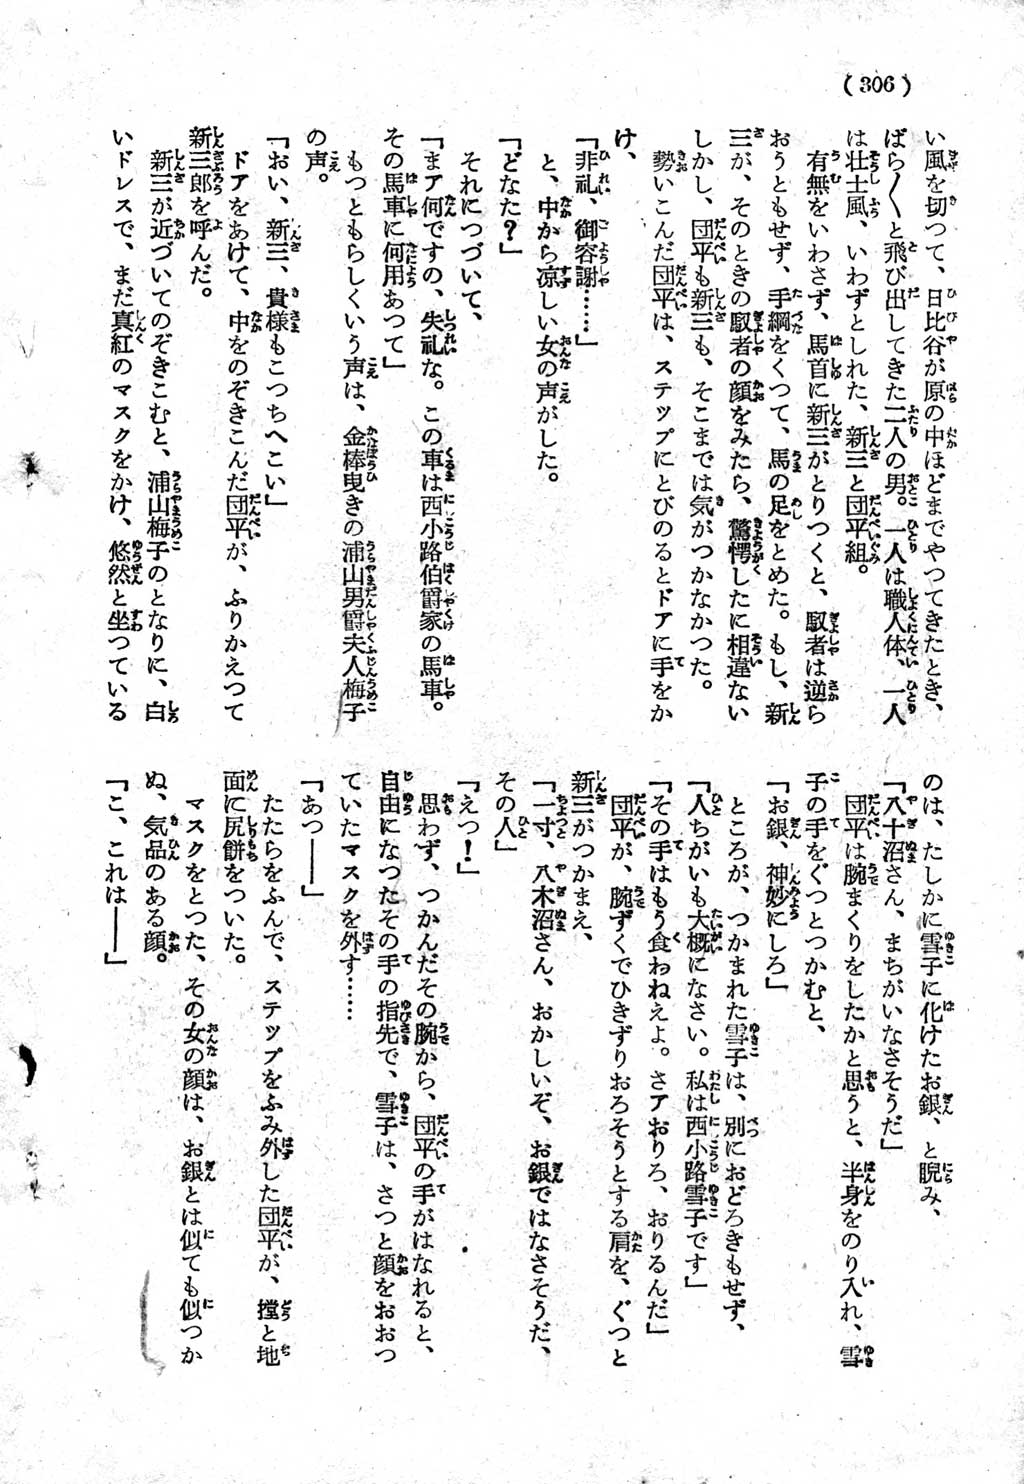 (306)
い風を切つて、日比谷が原の中ほどまでやつてきたとき、
ばら〳〵と飛び出してきた二人の男。一人は職人体、一人
は壮士風、いわずとしれた、新三と団平組。
有無をいわさず、馬首に新三がとりつくと、馭者は逆ら
おうともせず、手綱をくつて、馬の足をとめた。もし、新
三が、そのときの馭者の顔をみたら、驚愕したに相違ない
しかし、団平も新三も、そこまでは気がつかなかつた。
勢いこんだ団平は、ステップにとびのるとドアに手をか
け、
「非礼、御容謝……」
と、中から凉しい女の声がした。
「どなた？」
それにつづいて、
「まア何ですの、失礼な。この車は西小路伯爵家の馬車。
その馬車に何用あつて」
もつともらしくいう声は、金棒曳きの浦山男爵夫人梅子
の声。
「おい、新三、貴様もこつちへこい」
ドアをあけて、中をのぞきこんだ団平が、ふりかえつて
新三郎を呼んだ。
新三が近づいてのぞきこむと、浦山梅子のとなりに、白
いドレスで、まだ真紅のマスクをかけ、悠然と坐つている
のは、たしかに雪子に化けたお銀、と睨み、
「八十沼さん、まちがいなさそうだ」
団平は腕まくりをしたかと思うと、半身をのり入れ、雪
子の手をぐつとつかむと、
「お銀、神妙にしろ」
ところが、つかまれた雪子は、別におどろきもせず、
「人ちがいも大概になさい。私は西小路雪子です」
「その手はもう食わねえよ。さアおりろ、おりるんだ」
団平が、腕ずくでひきずりおろそうとする肩を、ぐつと
新三がつかまえ、
「一寸、八木沼さん、おかしいぞ、お銀ではなさそうだ、
その人」
「えつ！」
思わず、つかんだその腕から、団平の手がはなれると、
自由になつたその手の指先で、雪子は、さつと顔をおおつ
ていたマスクを外す……
「あつ――」
たたらをふんで、ステップをふみ外した団平が、撞と地
面に尻餅をついた。
マスクをとつた、その女の顔は、お銀とは似ても似つか
ぬ、気品のある顔。
「こ、これは――」